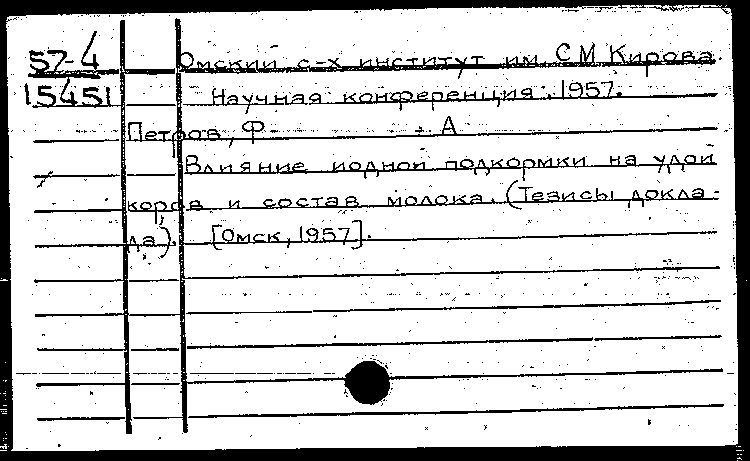 57-4 Омский с-х институт им. С М Кирова.
15451 Научная конференция. 1957.
Петров, Ф. А
Влияние иодной подкормки на удои
коров и состав молока. (Тезисы докла-
да). [Омск, 1957].